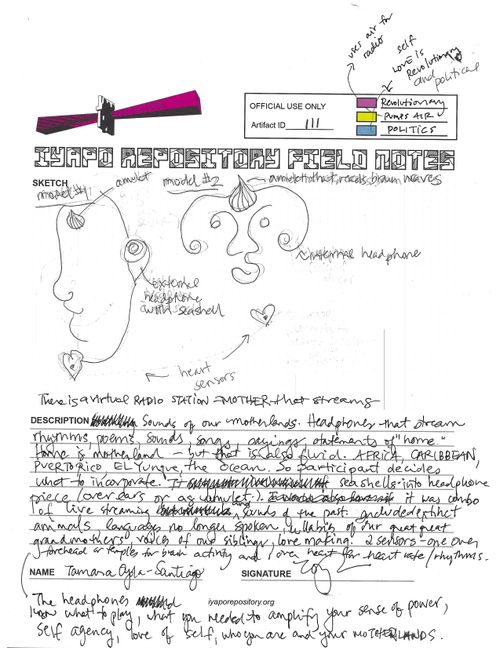 uses air for
radio
self
LOVE is
Revolutionary
and political
OFFICIAL USE ONLY
Artifact ID 111
Revolutionary
PUMPS AIR
POLITICS
IYAPO REPOSITORY FIELD NOTES
SKETCH
model #1
amulet
model #2
amulet that reads brain waves
external headphone
external
headphone
w/ seashell
heart
sensors
There is a virtual RADIO STATION - MOTHER - that streams
DESCRIPTION Sounds of our motherlands. Headphones that stream
rhythms, poems, sounds, songs, sayings, statements of "home."
Home is motherland - but that is also fluid. AFRICA, CARIBBEAN,
PUERTO RICO EL Yunque, the Ocean. So participant decides
what to incorporate. It seashells into headphone
piece (over ears or as amulet). it was combo
of live streaming sounds of the past. included extinct
animals languages no longer spoken, lullabies of our great great
grandmothers voices of our siblings, love making. 2 sensors - one over
forehead or temples for brain activity and 1 over heart for heart rate/rhythms.
NAME Tamara Oyola-Santiago SIGNATURE
iyaporepository.org
The headphones
know what to play, what you needed to amplify your sense of power,
self agency, love of self, who you are and your MOTHERLANDS.